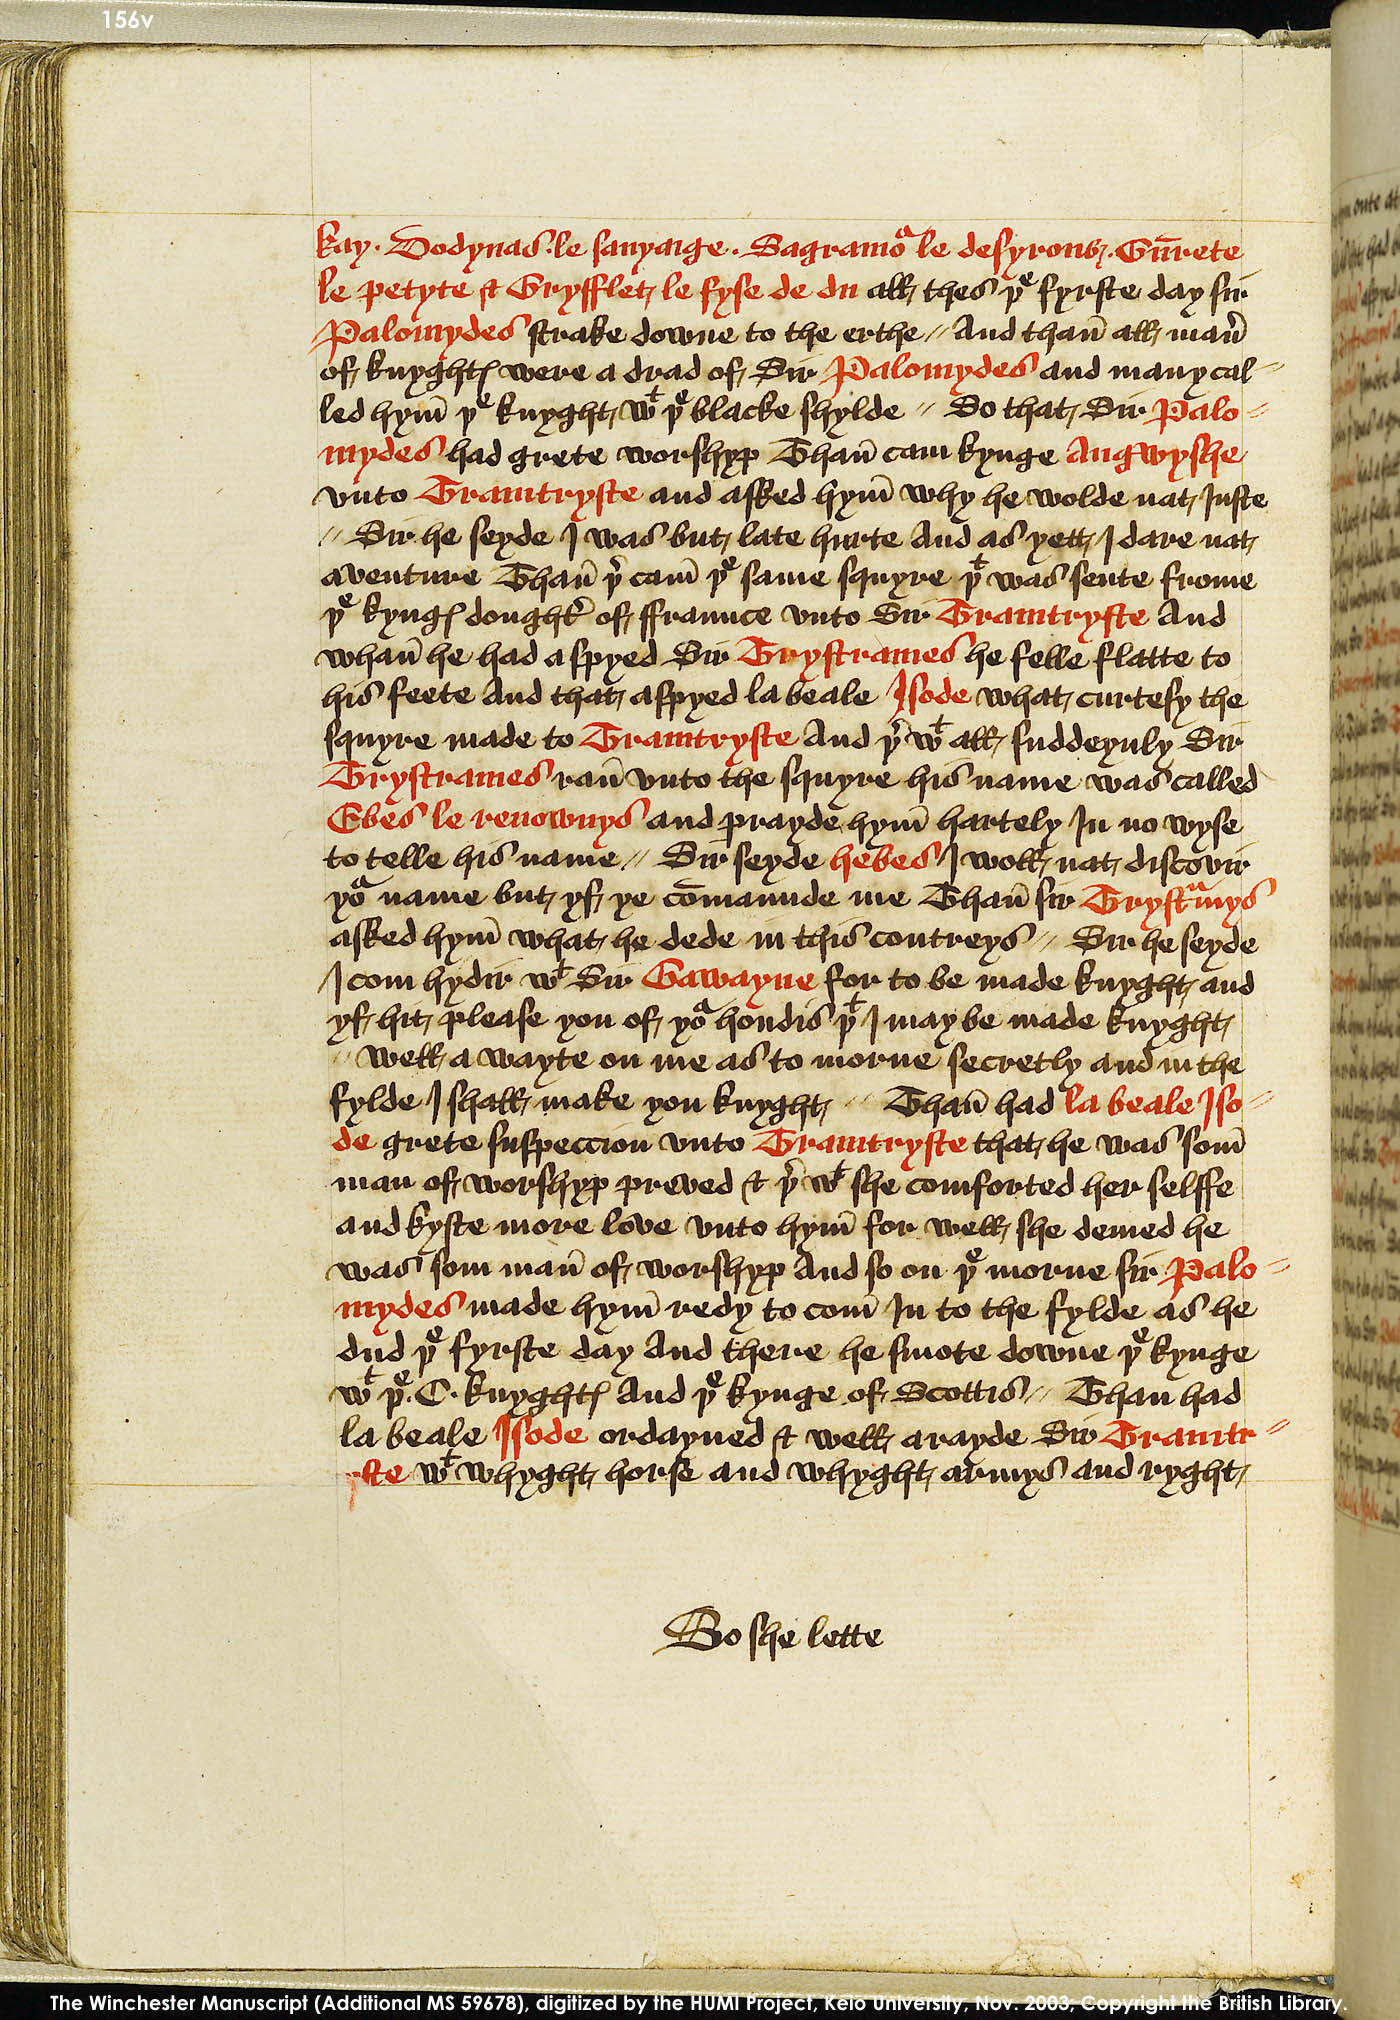 156v
kay · Dodynas · le sauyaige · Sagramoͬ le desyrous · Gu̅rete
le petyte & Gryfflet le fyse de du all thes þᵉ fyrste day sir
Palomydes strake downe to the erthe // And than̅ all man̅
of knyghtꝭ were a drad of Sir Palomydes and many cal⸗
led hym̅ þᵉ knyght wᵗ þᵉ blacke shylde // So that Sir Palo⸗
mydes had grete worshyp Than̅ cam kynge Angwyshe
vnto Tramtryste and asked hym̅ why he wolde nat Juste
// Sir he seyde I was but late hurte And as yett I dare nat
aventure Than̅ þʳ cam̅ þᵉ same squyre þᵗ was sente frome
þᵉ kyngꝭ doughtʳ of ffraunce vnto Sir Tramtryste And
whan̅ he had aspyed Sir Trystrames he felle flatte to
his feete And that aspyed la beale Isode what curtesy the
squyre made to Tramtryste And þʳ wᵗ all suddeynly Sir
Trystrames ran̅ vnto the squyre his name was called
Ebes le renownys and prayde hym̅ hartely In no wyse
to telle his name // Sir seyde hebes I woll nat discovir
yoͬ name but yf ye co̅maunde me Than̅ sir Trystᵃmys
asked hym̅ what he dede in this contreys // Sir he seyde
I com hydir wᵗ Sir Gawayne for to be made knyght and
yf hit please you of yoͬ hondis þᵗ I may be made knyght
// Well a wayte on me as to morne secretly and in the
fylde I shall make you knyght // Than̅ had la beale Iso⸗
de grete suspeccion vnto Tramtryste that he was som̅
man of worshyp preved & þʳ wᵗ she comforted her selffe
and kyste more love vnto hym̅ for well she demed he
was som man̅ of worshyp And so on þᵉ morne sir Palo⸗
mydes made hym̅ redy to com̅ In to the fylde as he
dud þᵉ fyrste day And there he smote downe þᵉ kynge
wᵗ þᵉ · C · knyghtꝭ And þᵉ kynge of Scottis // Than had
la beale Isode ordayned & well arayde Sir Tramtr⸗
yste wᵗ whyght horse and whyght armys and ryght
So she lette
The Winchester Manuscript (Additional MS 59678), digitized by the HUMI Project, Keio University, Nov. 2003; Copyright the British Library.